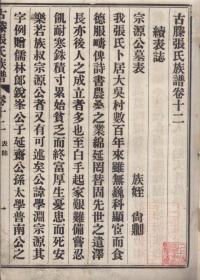 古滕張氏族譜卷十二
續表誌
宗源公墓表
族姪 尚
我張氏卜居大吳村數百年來雖無巍科顯宦而食
德服疇俾詩書農桑之業綿延罔替固先世之遺澤
長亦後人之成立者多也至白手起家艱難備嘗忍
飢耐寒銖積寸累始貧乏而終富厚生憂患而死安
樂若族叔宗源公者又有可述矣公諱學淵宗源其
字例贈儒林郎銳峯公子延齋公孫太學普南公之
古滕張氏族譜 卷十
表誌
一